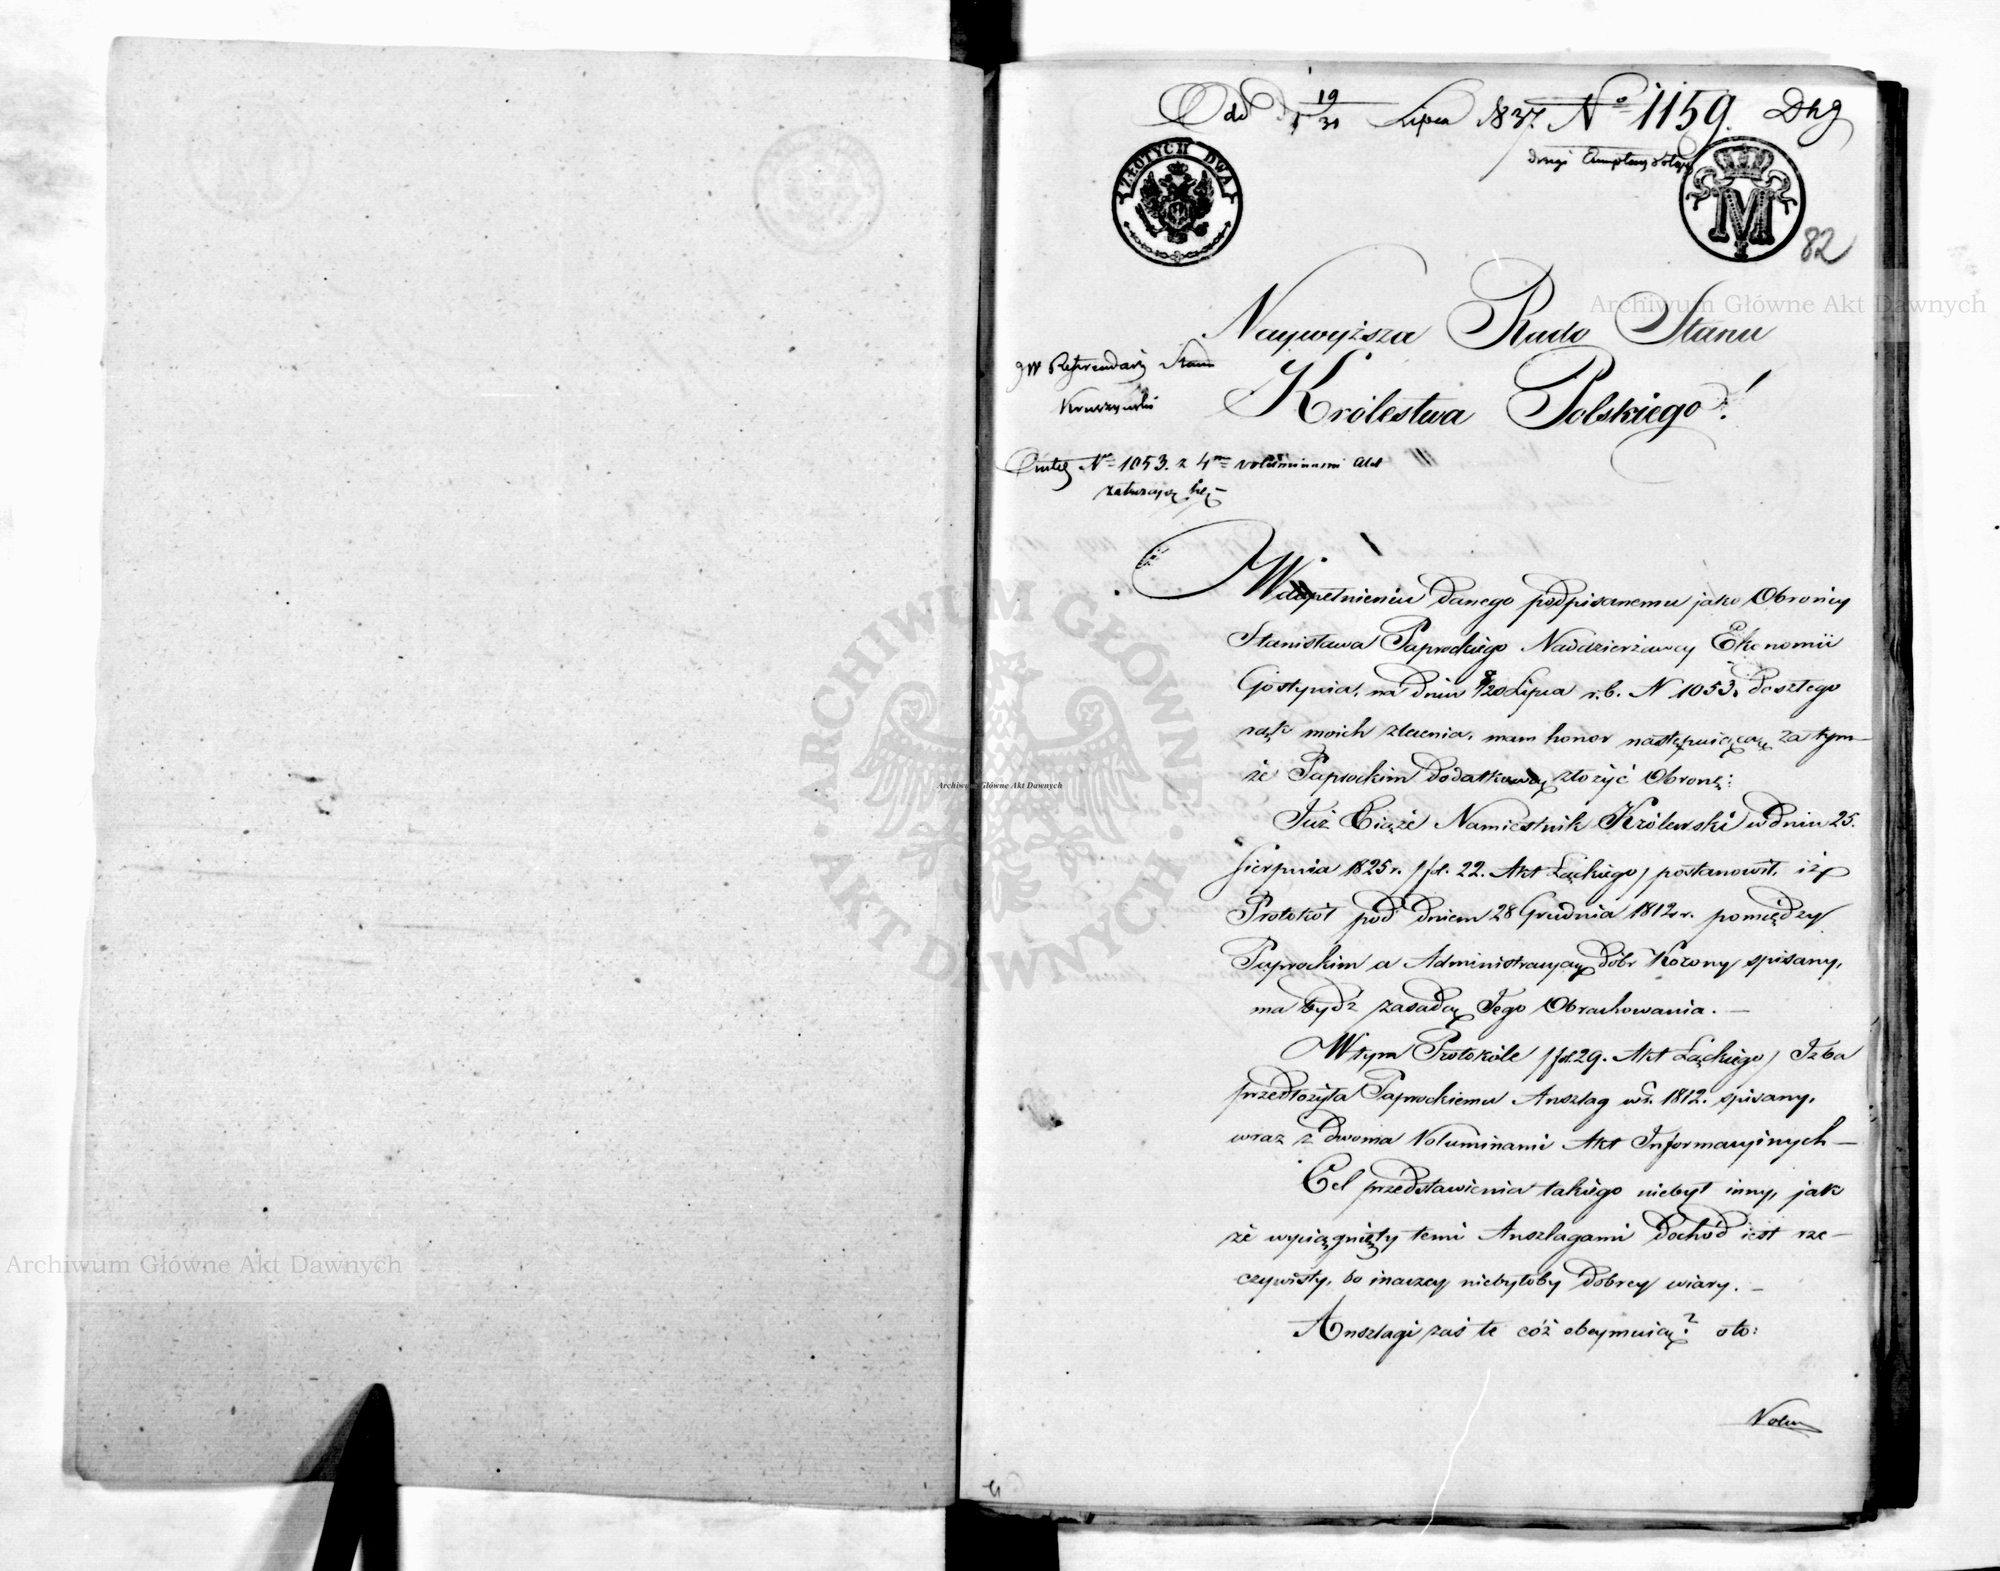 Odd d 19/31 Lipca 1837. No 1159.
drugi
ZŁOTYCH DWA
M
82
Naywyższa Rado Stanu
Królestwa Polskiego!
JW Referendarz Stanu
No 1053. z 4ma voluminami Akt
W dopełnieniu danego podpisanemu jako Obrońcy
Stanisława Paprockiego Naddzierżawcy Ekonomii
Gostynia, na dniu 8/20 Lipca r.b. N 1053. doszłego
rąk moich zlecenia, mam honor następuiącą za tym-
że Paprockim dodatkową złożyć Obronę:
Już Xiąże Namiestnik Królewski w dniu 25.
Sierpnia 1825 r. /fol. 22. Akt Łąckiego/ postanowił, iż
Protokół pod dniem 28 Grudnia 1812 r. pomiędzy
Paprockim a Administracyą dóbr Korony spisany,
ma bydź zasadą Jego Obrachowania. —
W tym Protokóle /fol. 29. Akt Łąckiego/ Izba
przedłożyła Paprockiemu Anszlag w r. 1812. spisany,
wraz z dwoma Voluminami Akt Informacyinych —
Cel przedstawienia takiego niebył inny, jak
że wyciągnięty temi Anszlagami dochód iest rze-
czywisty, bo inaczey niebyłoby dobrey wiary. —
Anszlagi zaś te cóż obeymuią? oto:
Volum
Archiwum Główne Akt Dawnych
Archiwum Główne Akt Dawnych
Archiwum Główne Akt Dawnych
ARCHIWUM GŁÓWNE
· AKT DAWNYCH ·